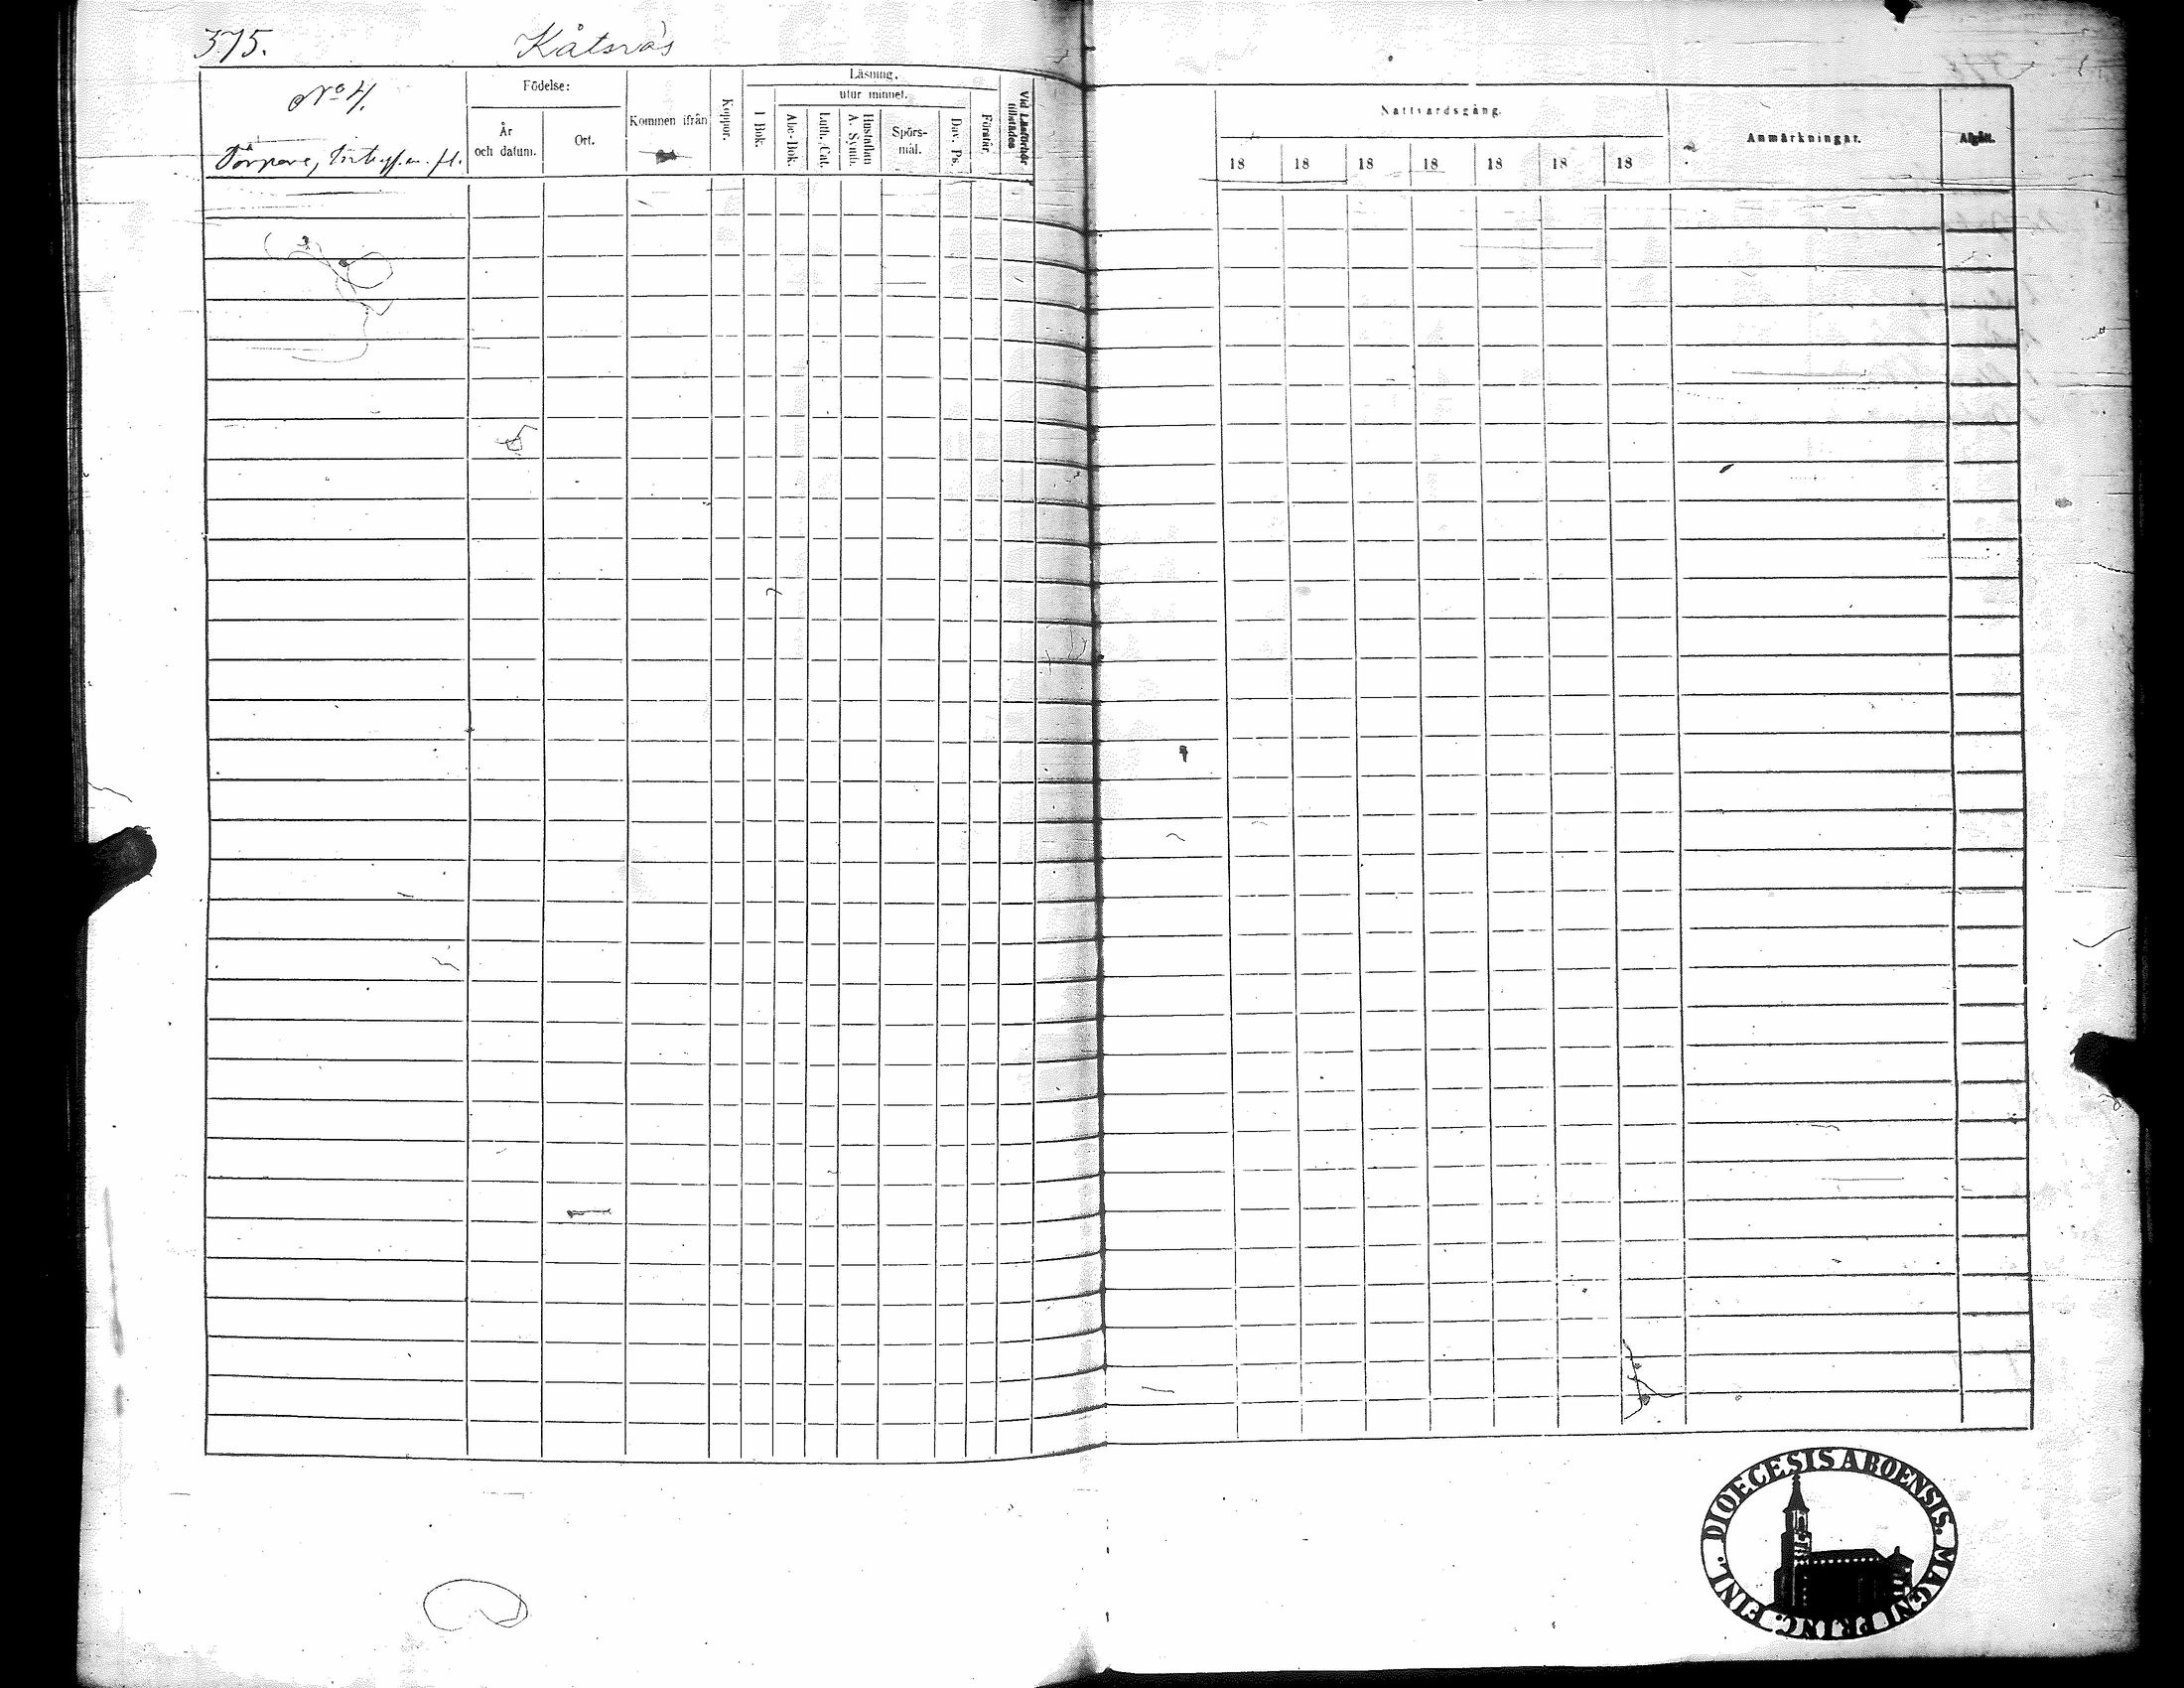 375. Kåtsnäs
No 4.
Torpare,
Födelse:
År och datum.
Ort.
Kommen ifrån
Koppor.
Läsning.
I Bok.
utur minnet.
Abc-Bok.
Luth. Cat.
Hustaflan A. Symb.
Spörs-mål.
Dav. Ps.
Förstår.
Vid Läsförhör tillstädes
Nattvardsgång.
18 18 18 18 18 18 18
Anmärkningar.
Afgått.
DIOECESIS ABOENSIS. MAGNI PRINC. FINL.